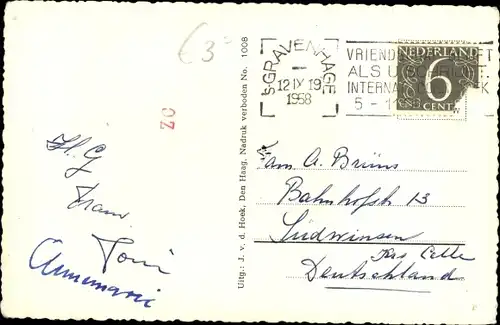 (3
's-GRAVENHAGE
12 IX 19
1958
VRIEND
ALS U SCHRIJFT
INTERNA
5 - 1
NEDERLAND
6
CENT
ZC
Uitg.: J. v. d. Hoek, Den Haag. Nadruk verboden No. 1008
Fam A. Brüns
Bahnhofstr 13
Südwinsen
Krs Celle
Deutschland
H. G
Fram.
Toni
Annemarie